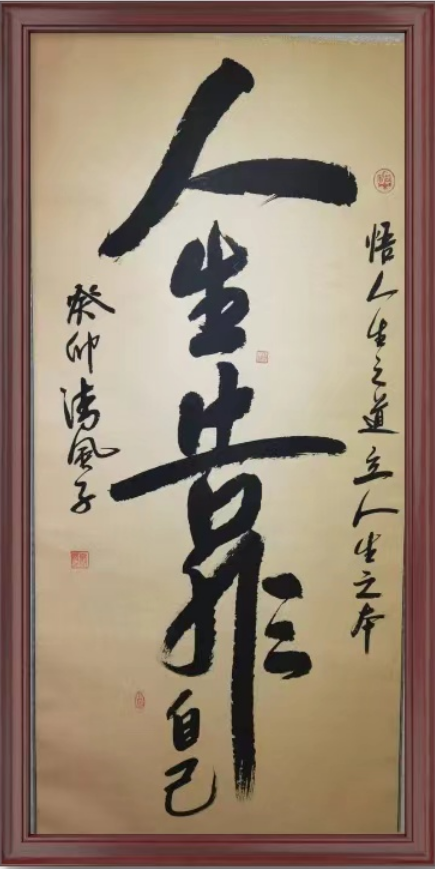 悟人生之道立人生之本
人生靠自己
癸卯清风子